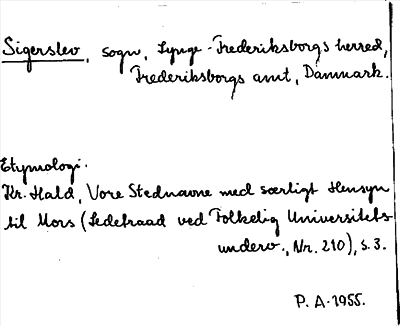 Sigerslev, sogn, Lynge-Frederiksborgs herred,
Frederiksborgs amt, Danmark.
Etymologi.
Kr. Hald, Vore Stednavne med særligt Hensyn
til Mors (Ledetraad ved Folkelig Universitets-
underv., Nr. 210), s. 3.
P. A. 1955.